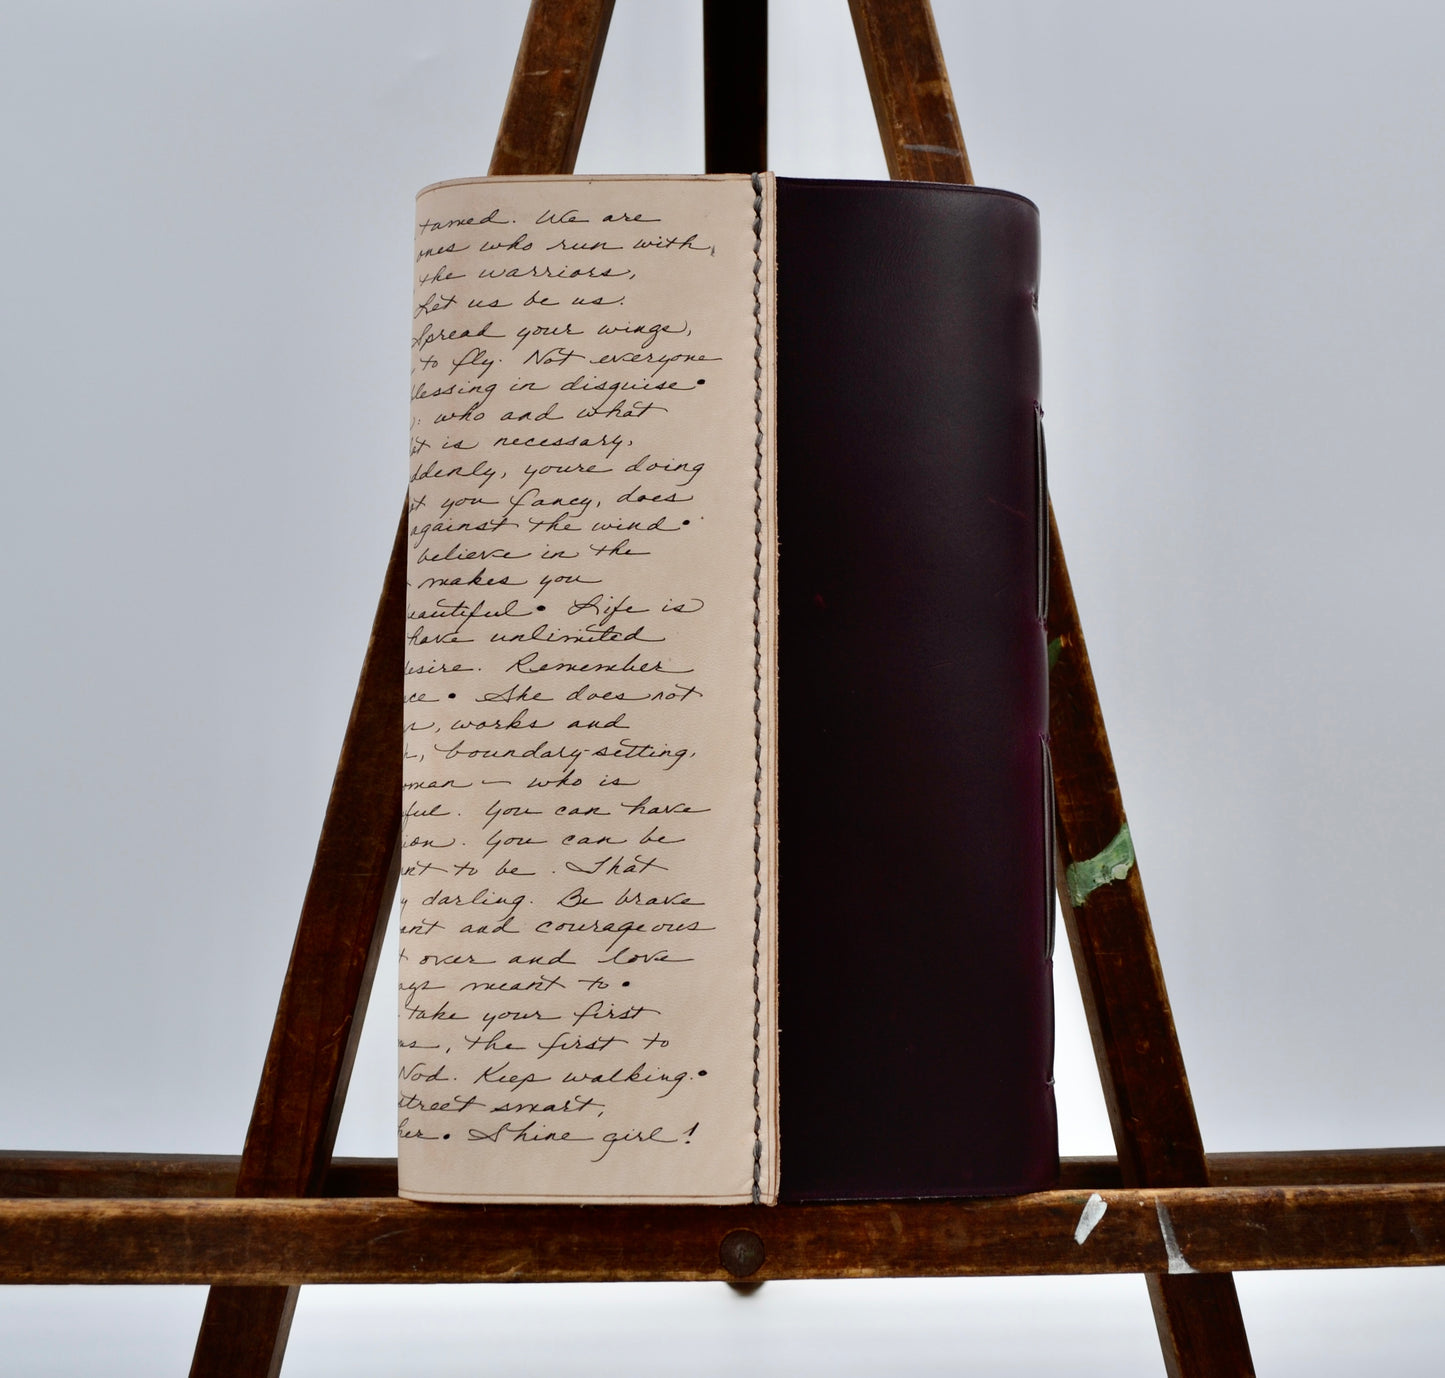 tamed. We are
ones who run with,
the warriors,
Let us be us.
Spread your wings,
to fly. Not everyone
lessing in disguise •
who and what
is necessary,
ddenly, youre doing
you fancy, does
against the wind •
believe in the
makes you
eautiful • Life is
have unlimited
desire. Remember
ce • She does not
, works and
, boundary-setting,
oman — who is
ful. You can have
ion. You can be
nt to be. That
y darling. Be brave
ant and courageous
t over and love
ays meant to •
take your first
ns, the first to
Nod. Keep walking. •
street smart,
her • Shine girl!